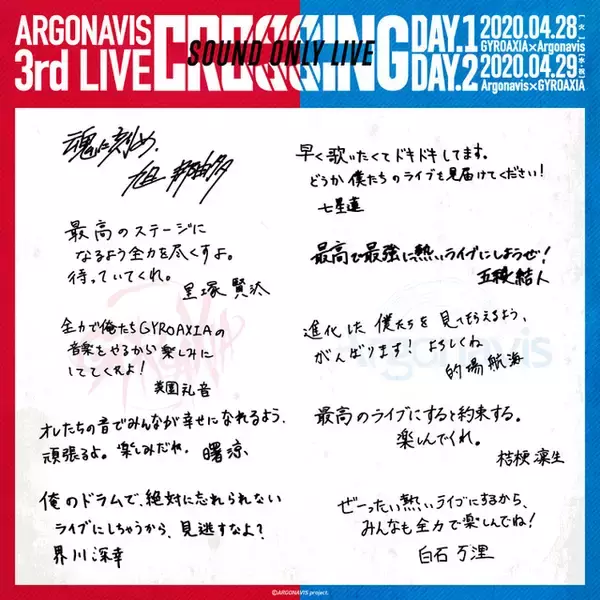 ARGONAVIS
3rd LIVE
CROSSING
SOUND ONLY LIVE
DAY.1 2020.04.28[火]
GYROAXIA×Argonavis
DAY.2 2020.04.29[水・祝]
Argonavis×GYROAXIA
魂に刻め。
旭 那由多
最高のステージに
なるよう全力を尽くすよ。
待っていてくれ。
里塚 賢汰
全力で俺たちGYROAXIAの
音楽をやるから楽しみに
しててくれよ!
美園礼音
オレたちの音でみんなが幸せになれるよう、
頑張るよ。楽しみだね。
曙 涼
俺のドラムで、絶対に忘れられない
ライブにしちゃうから、見逃すなよ?
界川 深幸
早く歌いたくてドキドキしてます。
どうか僕たちのライブを見届けてください!
七星蓮
最高で最強に熱いライブにしようぜ!
五稜結人
進化した僕たちを見てもらえるよう、
がんばります! よろしくね
的場航海
Argonavis
最高のライブにすると約束する。
楽しんでくれ。
桔梗 凛生
ぜーったい熱いライブにするから、
みんなも全力で楽しんでね!
白石 万浬
©ARGONAVIS project.